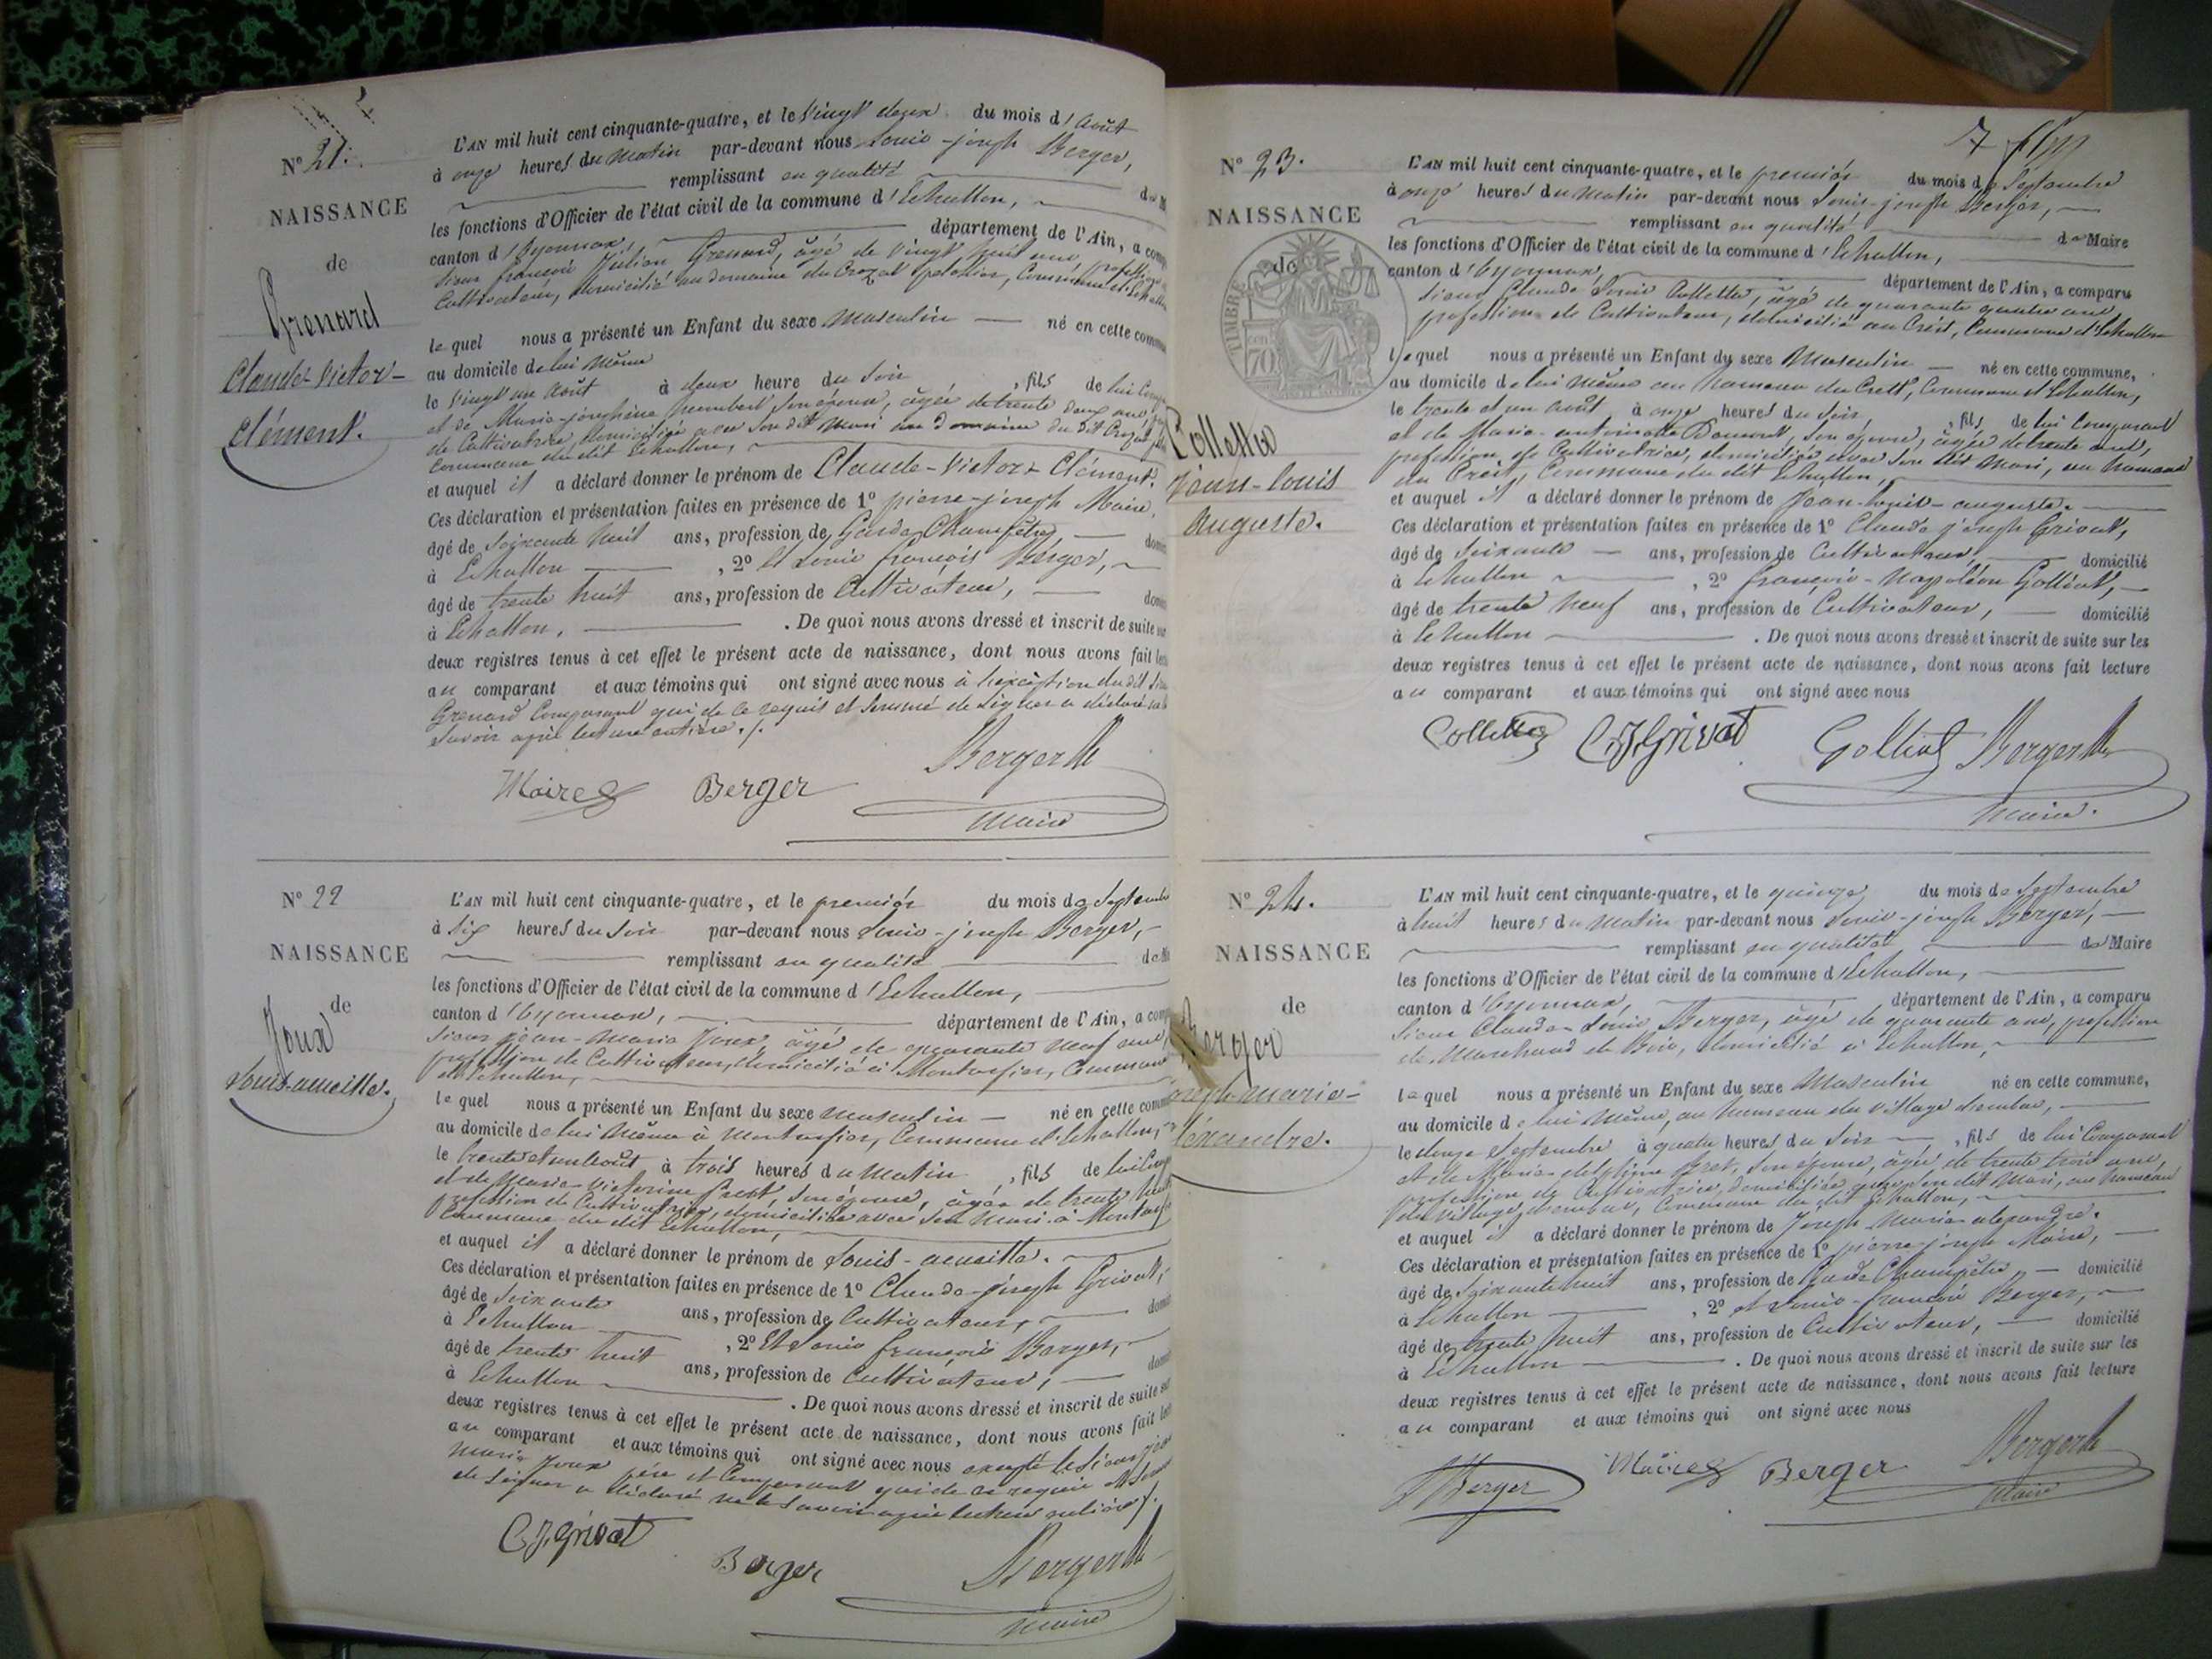 N° 21.
NAISSANCE
de
Grenard
Claude-Victor-
Clément.
L'AN mil huit cent cinquante-quatre, et le vingt deux du mois d'Août
à onze heures du matin par-devant nous Louis-joseph Berger,
remplissant en qualité
les fonctions d'Officier de l'état civil de la commune d'Echallon,
canton d'Oyonnax, département de l'Ain, a comp
Sieur françois Julien Grenard, âgé de vingt huit ans, profession
Cultivateur, domicilié au domaine du Crozat
lequel nous a présenté un Enfant du sexe masculin né en cette commu
au domicile de lui même
le vingt un Août à deux heure du Soir, fils de lui
et de Marie-joséphine humbert son épouse, âgée de trente deux ans,
de Cultivatrice, domiciliée avec son dit mari au domaine du dit Crozat
Commune du dit Echallon,
et auquel il a déclaré donner le prénom de Claude-Victor-Clément.
Ces déclaration et présentation faites en présence de 1° pierre-joseph Maire,
âgé de Soixante huit ans, profession de Garde Champêtre,
à Echallon, 2° Et Louis françois Berger,
âgé de trente huit ans, profession de Cultivateur,
à Echallon. De quoi nous avons dressé et inscrit de suite
deux registres tenus à cet effet le présent acte de naissance, dont nous avons fait
au comparant et aux témoins qui ont signé avec nous à l'exception du dit
Grenard Comparant qui de ce requis et sommé de signer a déclaré
Savoir après lecture entière./.
Maire Berger Berger
Maire
N° 22
NAISSANCE
de
Joux
Louis-aucille.
L'AN mil huit cent cinquante-quatre, et le premier du mois de Septembre
à Six heures du Soir par-devant nous Louis-joseph Berger,
remplissant en qualité
les fonctions d'Officier de l'état civil de la commune d'Echallon,
canton d'Oyonnax, département de l'Ain, a comp
Sieur jean-Marie Joux âgé de quarante neuf ans,
profession de Cultivateur, domicilié à Commune
d'Echallon,
lequel nous a présenté un Enfant du sexe masculin né en cette comm
au domicile de lui même à Commune d'Echallon,
le trente et un Août à trois heures du matin, fils de lui
et de Marie son épouse, âgée de trente
profession de Cultivatrice, domiciliée avec son Mari à
Commune du dit Echallon,
et auquel il a déclaré donner le prénom de Louis-aucille.
Ces déclaration et présentation faites en présence de 1° Claude-joseph Grivat,
âgé de Soixante ans, profession de Cultivateur,
à Echallon, 2° Et Louis françois Berger,
âgé de trente huit ans, profession de Cultivateur,
à Echallon. De quoi nous avons dressé et inscrit de suite
deux registres tenus à cet effet le présent acte de naissance, dont nous avons fait
au comparant et aux témoins qui ont signé avec nous excepté le Sieur
Marie Joux père et Comparant qui de ce requis et
de Signer a déclaré ne le Savoir après lecture entière./.
C.J. Grivat Berger Berger
Maire
7
N° 23.
NAISSANCE
de
TIMBRE
70
Colletta
Jean-louis
auguste.
L'AN mil huit cent cinquante-quatre, et le premier du mois de Septembre
à onze heures du matin par-devant nous Louis-joseph Berger,
remplissant en qualité de Maire
les fonctions d'Officier de l'état civil de la commune d'Echallon,
canton d'Oyonnax, département de l'Ain, a comparu
Sieur Claude Louis Colletta, âgé de quarante quatre ans,
profession de Cultivateur, domicilié au Crêt, Commune d'Echallon
lequel nous a présenté un Enfant du sexe Masculin né en cette commune,
au domicile de lui même au hameau du Crêtt, Commune d'Echallon,
le trente et un Août à onze heures du Soir, fils de lui Comparant
et de Marie-antoinette son épouse, âgée de trente ans,
profession de Cultivatrice, domiciliée avec son dit Mari, au hameau
du Crêt, Commune du dit Echallon,
et auquel il a déclaré donner le prénom de Jean-louis-auguste.
Ces déclaration et présentation faites en présence de 1° Claude joseph Grivat,
âgé de Soixante ans, profession de Cultivateur, domicilié
à Echallon, 2° françois-Napoléon Golliat,
âgé de trente neuf ans, profession de Cultivateur, domicilié
à Echallon. De quoi nous avons dressé et inscrit de suite sur les
deux registres tenus à cet effet le présent acte de naissance, dont nous avons fait lecture
au comparant et aux témoins qui ont signé avec nous
Colletta C.J. Grivat Golliat Berger
Maire.
N° 24.
NAISSANCE
de
Berger
joseph-marie-
alexandre.
L'AN mil huit cent cinquante-quatre, et le quinze du mois de Septembre
à huit heures du matin par-devant nous Louis-joseph Berger,
remplissant en qualité de Maire
les fonctions d'Officier de l'état civil de la commune d'Echallon,
canton d'Oyonnax, département de l'Ain, a comparu
Sieur Claude-Louis Berger, âgé de quarante ans, profession
de Marchand de Bois, domicilié à Echallon,
lequel nous a présenté un Enfant du sexe Masculin né en cette commune,
au domicile de lui même, au hameau du village
le douze Septembre à quatre heures du Soir, fils de lui Comparant
et de Marie-delphine son épouse, âgée de trente trois ans,
profession de Cultivatrice, domiciliée avec son dit Mari, au hameau
du village Commune du dit Echallon,
et auquel il a déclaré donner le prénom de Joseph Marie alexandre.
Ces déclaration et présentation faites en présence de 1° pierre-joseph Maire,
âgé de Soixante huit ans, profession de Garde Champêtre, domicilié
à Echallon, 2° et Louis-françois Berger,
âgé de trente huit ans, profession de Cultivateur, domicilié
à Echallon. De quoi nous avons dressé et inscrit de suite sur les
deux registres tenus à cet effet le présent acte de naissance, dont nous avons fait lecture
au comparant et aux témoins qui ont signé avec nous
Berger Maire Berger Berger
Maire